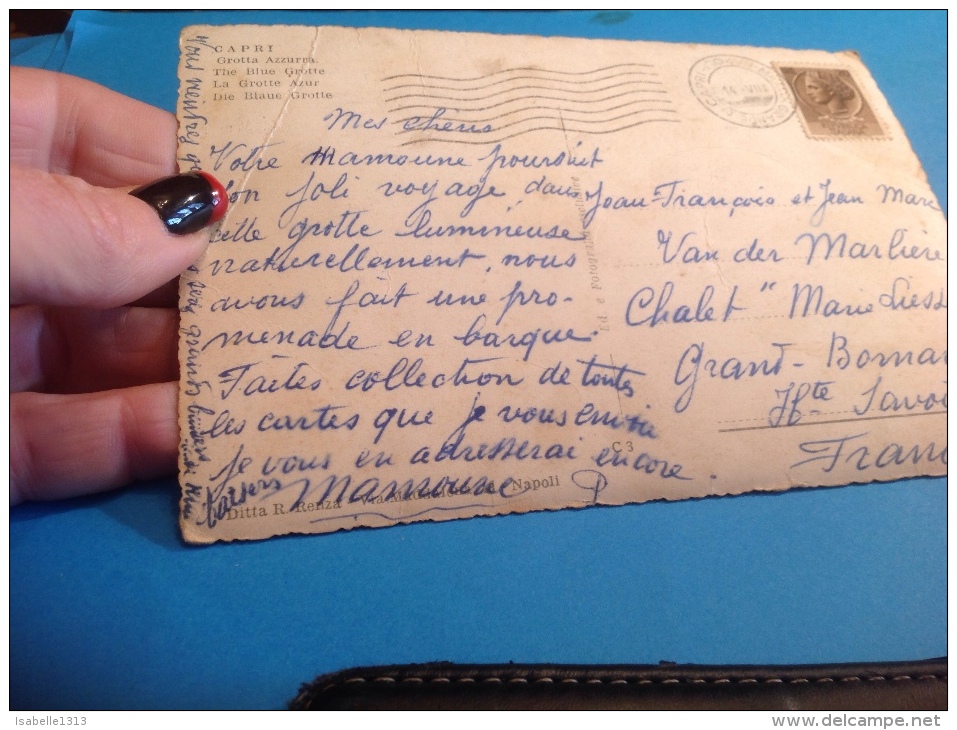 CAPRI
Grotta Azzurra.
The Blue Grotte
La Grotte Azur
Die Blaue Grotte
Mes chéris
Votre Mamoune poursuit
son joli voyage, dans
cette grotte lumineuse
naturellement, nous
avons fait une pro-
menade en barque.
Faites collection de toutes
les cartes que je vous envoie
je vous en adresserai encore.
Mamoune
baisers
Jean-François et Jean Marc
Van der Marlière
Chalet "Marie Liess
Grand-Bornan
Hte Savoi
Fran
C 3
Ditta R. Renza
Napoli
Isabelle1313
www.delcampe.net